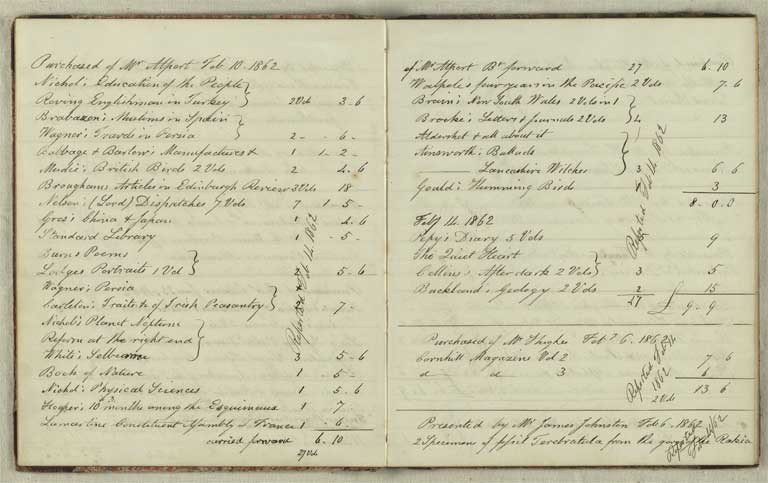 Purchased of Mr Alport Feb 10. 1862
Nichol's Education of the People
Roving Englishman in Turkey 2 Vols 3 - 6
Brabazon's Muslims in Spain
Wagner's Travels in Persia 2 - - 6 -
Babbage & Barlow's Manufactures & 1 1 - 2 -
Mudie's British Birds 2 Vols 2 4 - 6
Brougham's Articles in Edinburgh Review 3 Vols 18
Nelson's (Lord) Dispatches 7 Vols 7 1 - 5 -
China & Japan 1 4 - 6
Standard Library 1 - 5 -
Burns Poems
Lodges Portraits 1 Vol 2 5 - 6
Wagner's Persia
Carleton's Traits & of Irish Peasantry 2 - 7 -
Nichol's Planet Neptune
Reform at the right end
White's Selborne 3 5 - 6
Book of Nature 1 - 5 -
Nichol's Physical Sciences 1 - 5 - 6
Hooper's 10 months among the Esquimaux 1 7
Lamartine Constituent Assembly of France 1 - 6 -
carried forward 6 - 10
27 Vols
Reported Feb 14. 1862
of Mr Alport Bt forward 27 6 - 10
Walpole's four years in the Pacific 2 Vols 7 - 6
Braim's New South Wales 2 Vols in 1
Brooke's Letters & journals 2 Vols 4 13
Aldershot & all about it
Ainsworth's Ballads
Lancashire Witches 3 6 - 6
Gould's Humming Birds 1 3
8 - 0 - 0
Reported Feb 14. 1862
Feby 14. 1862
Pepy's Diary 5 Vols 9
The Quiet Heart
Collins' After dark 2 Vols 3 5
Buckland's Geology 2 Vols 2 15
£ 9 - 9
Purchased of Mr Hughes Feby 6. 1862
Cornhill Magazine Vol 2 7 - 6
do do 3 6
2 Vols 13 6
Reported Feb 14 1862
Presented by Mr James Johnston Feb 6. 1862
2 Specimens of fossil Terebratula from the
Reported Feb 14/62